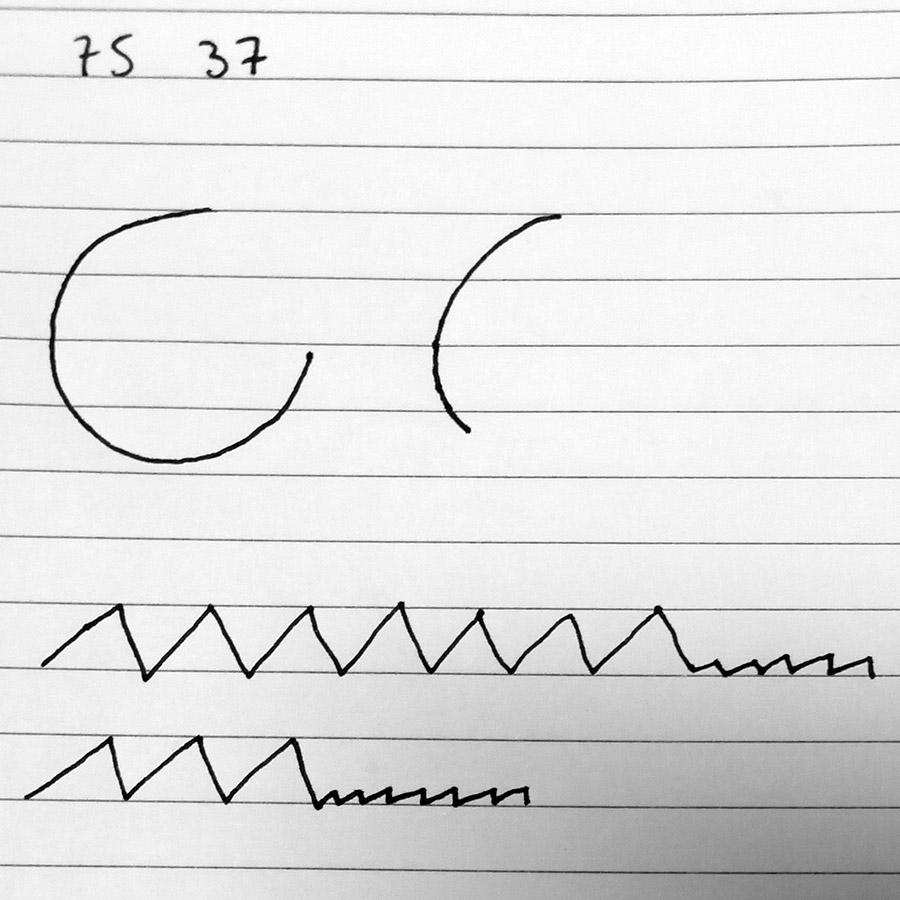 75 37